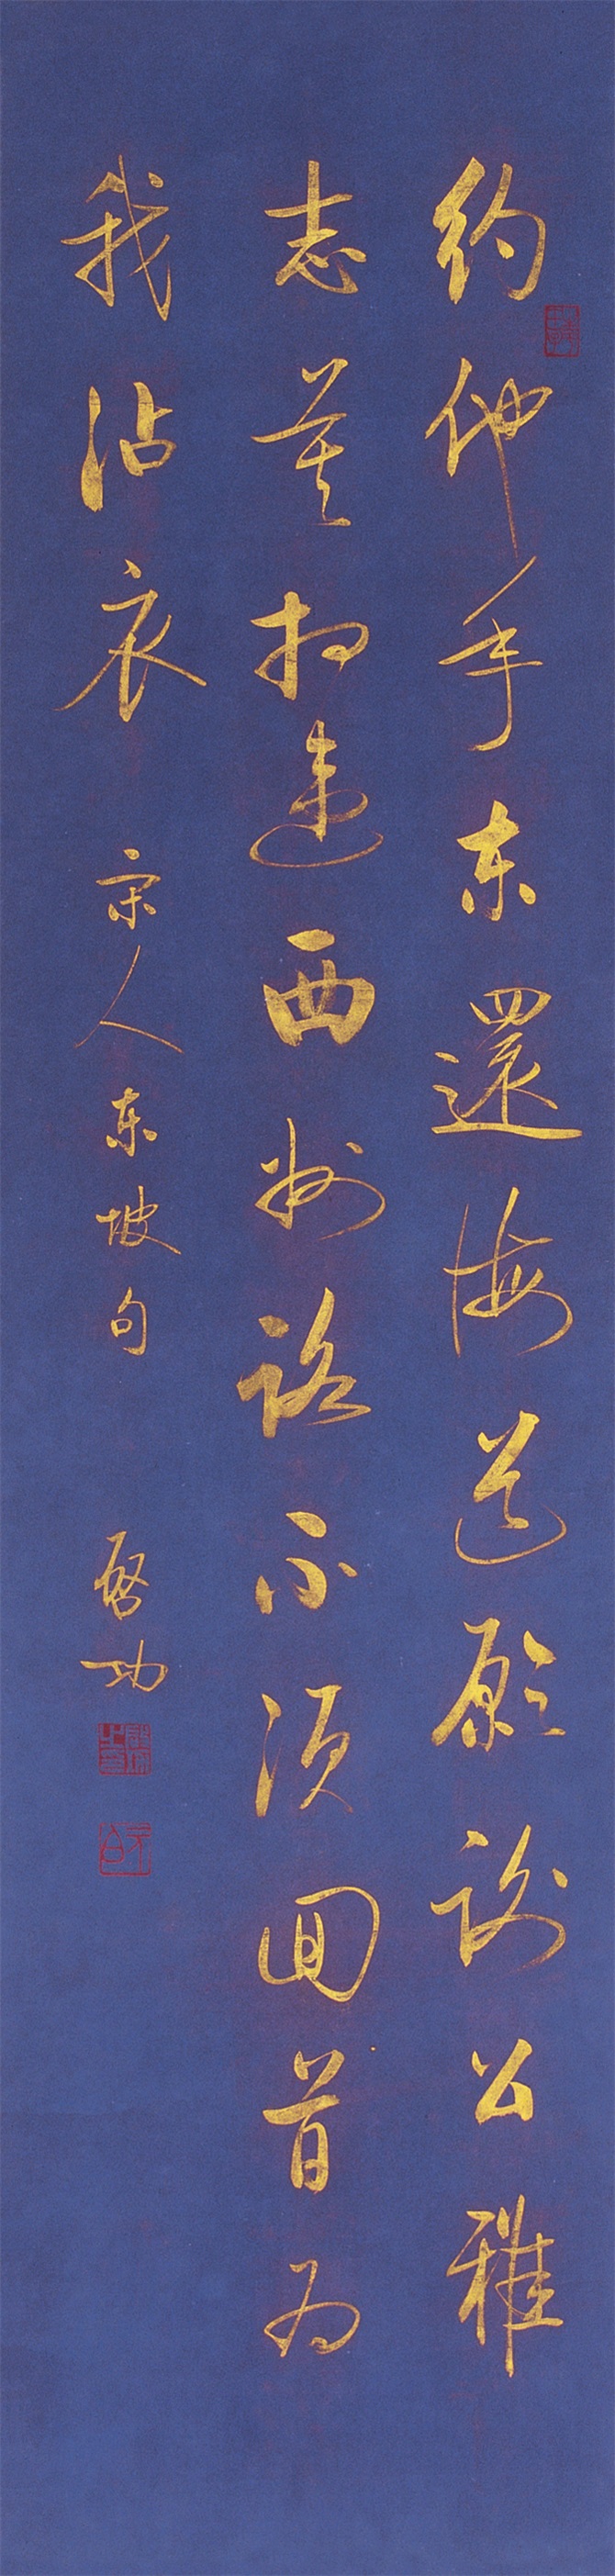 约他年东还海道愿谢公雅
志莫相违西州路不须回首为
我沾衣 宋人东坡句 启功